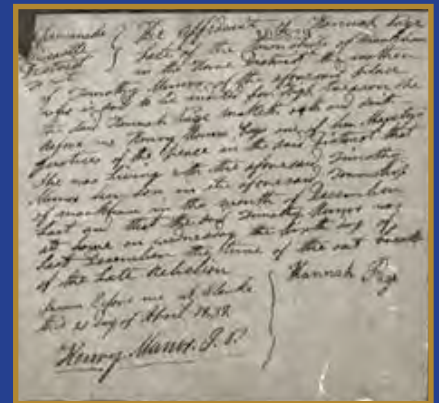 Newcastle { The Affidavit of Hannah Page
District { late of the Township of Markham
in the Home District the mother
of Timothy Munro of the aforesaid place
who is said to be for high treason She
the said Hannah Page maketh oath and saith
before me Henry one of her Majestys
Justices of the Peace in the said District that
She was living with the aforesaid Timothy
Munro her Son in the aforesaid Township
of Markham in the month of December
last and that the said Timothy Munro was
at home on wednesday the day of
last December the time of the out break
of the late Rebellion
Sworn before me at Clarke
this day of April 1838
Hannah Page
Henry J. P.